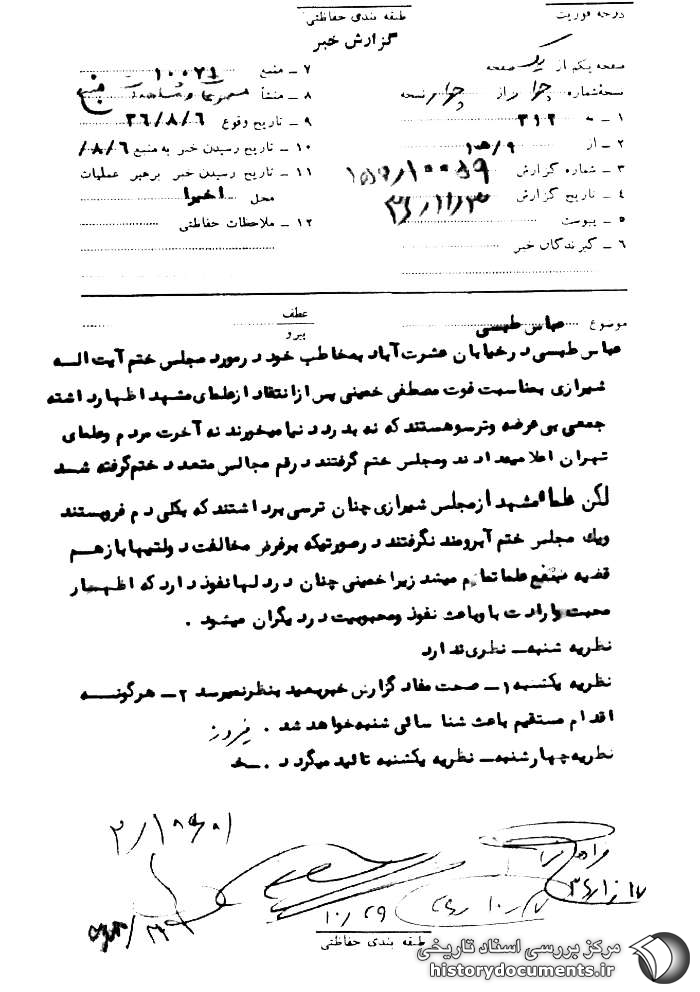 درجه فوریت
طبقه بندی حفاظتی
گزارش خبر
صفحه یکم از یک صفحه
نسخه شماره چهار از چهار نسخه
۱ ـ به ۳۱۲
۲ ـ از ۹/ه‍ ۱
۳ ـ شماره گزارش
۴ ـ تاریخ گزارش
۵ ـ پیوست
۶ ـ گیرندگان خبر
۷ ـ منبع ۱۰۰۷۱
۸ ـ منشأ
۹ ـ تاریخ وقوع ۳۶/۸/۶
۱۰ ـ تاریخ رسیدن خبر به منبع ۸/۶/
۱۱ ـ تاریخ رسیدن خبر برهبر عملیات
محل اخیرا
۱۲ ـ ملاحظات حفاظتی
موضوع عباس طبسی
عطف
پیرو
عباس طبسی در خیابان عشرت آباد به مخاطب خود در مورد مجلس ختم آیت اله
شیرازی بمناسبت فوت مصطفی خمینی پس از انتقاد از علمای مشهد اظهار داشته
جمعی بی عرضه و ترسو هستند که نه بدرد دنیا میخورند نه آخرت مردم و علمای
تهران اعلامیه دادند و مجلس ختم گرفتند در قم مجالس متعدد ختم گرفته شد
لکن علماء مشهد از مجلس شیرازی چنان ترسی برداشتند که بکلی دم فروبستند
ویک مجلس ختم آبرومند نگرفتند در صورتیکه بر فرض مخالفت دولتیها باز هم
قضیه بنفع علما تمام میشد زیرا خمینی چنان در دلها نفوذ دارد که اظهار
محبت وارادت با و باعث نفوذ ومحبوبیت در دیگران میشود .
نظریه شنبه ـ نظری ندارد
نظریه یکشنبه ۱ـ صحت مفاد گزارش خبر بعید بنظر نمیرسد ۲ـ هرگونه
اقدام مستقیم باعث شناسائی شنبه خواهد شد . فیروز
نظریه چهارشنبه ـ نظریه یکشنبه تائید میگردد .
۱۰/۲۹
طبقه بندی حفاظتی
مرکز بررسی اسناد تاریخی
historydocuments.ir